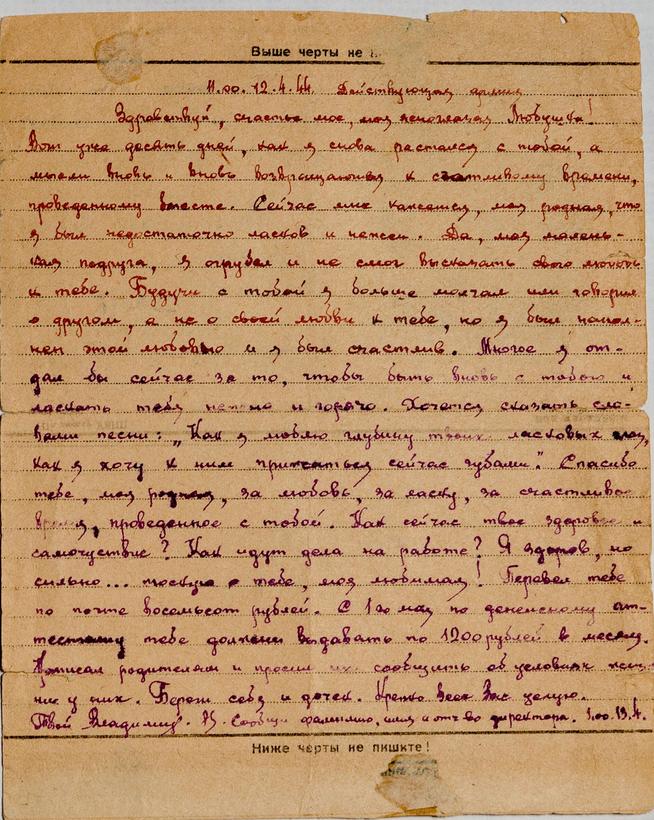 Выше черты не
11.00. 12.4.44 Действующая армия
Здравствуй, счастье мое, моя ясноглазая Любушка!
Вот уже десять дней, как я снова расстался с тобой, а
мысли вновь и вновь возвращаются к счастливому времени,
проведенному вместе. Сейчас мне кажется, моя родная, что
я был недостаточно ласков и нежен. Да, моя малень-
кая подруга, я огрубел и не смог высказать свою любовь
к тебе. Будучи с тобой я больше молчал или говорил
о другом, а не о своей любви к тебе, но я был напол-
нен этой любовью и я был счастлив. Многое я от-
дал бы сейчас за то, чтобы быть вновь с тобою и
ласкать тебя нежно и горячо. Хочется сказать сло-
вами песни: „Как я люблю глубину твоих ласковых глаз,
как я хочу к ним прижаться сейчас губами". Спасибо
тебе, моя родная, за любовь, за ласку, за счастливое
время, проведенное с тобой. Как сейчас твое здоровье и
самочуствие? Как идут дела на работе? Я здоров, но
сильно... тоскую о тебе, моя любимая! Перевел тебе
по почте восемьсот рублей. С 1го мая по денежному ат-
тестату тебе должны выдавать по 1200 рублей в месяц.
Написал родителям и просил их сообщить об условиях
ния у них. Береги себя и дочек. Крепко Всех Вас целую.
Твой Владимир. Сообщи фамилию, имя и отч-во директора. 1.00. 13.4.
Ниже черты не пишите!